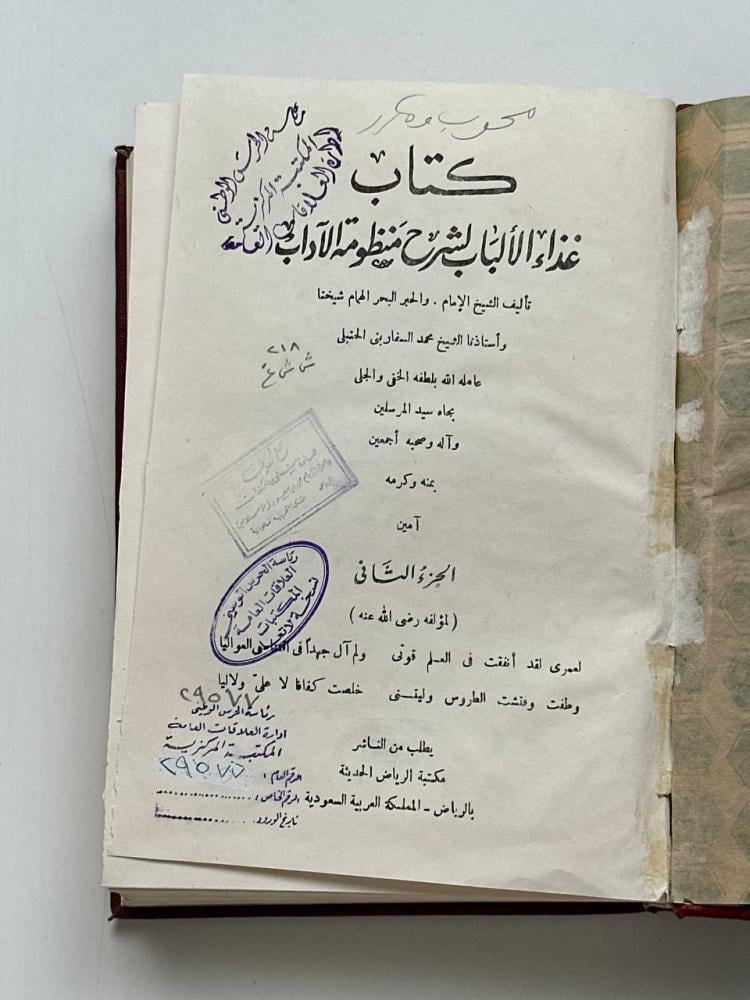 محسوب ومكرر
رئاسة الحرس الوطني
المكتبة المركزية
إدارة العلاقات العامة
كتاب
غذاء الألباب لشرح منظومة الآداب
تأليف الشيخ الإمام . والحبر البحر الهمام شيخنا
وأستاذنا الشيخ محمد السفاريني الحنبلي
عامله الله بلطفه الخفي والجلي
بجاه سيد المرسلين
وآله وصحبه أجمعين
بمنه وكرمه
آمين
٢١٨
الجزء الثاني
( لمؤلفه رضى الله عنه )
لعمرى لقد أنفقت فى العلم قوتى ولم آل جهداً فى العواليا
وطفت وفتشت الطروس وليتنى خلصت كفافا لا علىّ ولاليا
رئاسة الحرس الوطني
العلاقات العامة
المكتبات
يطلب من الناشر
مكتبة الرياض الحديثة
بالرياض - المملكة العربية السعودية
٢٩٥٧٧
رئاسة الحرس الوطني
ادارة العلاقات العامة
المكتبة المركزية
الرقم العام : ٢٩٥٧٧
الرقم الخاص :
تاريخ الورود :